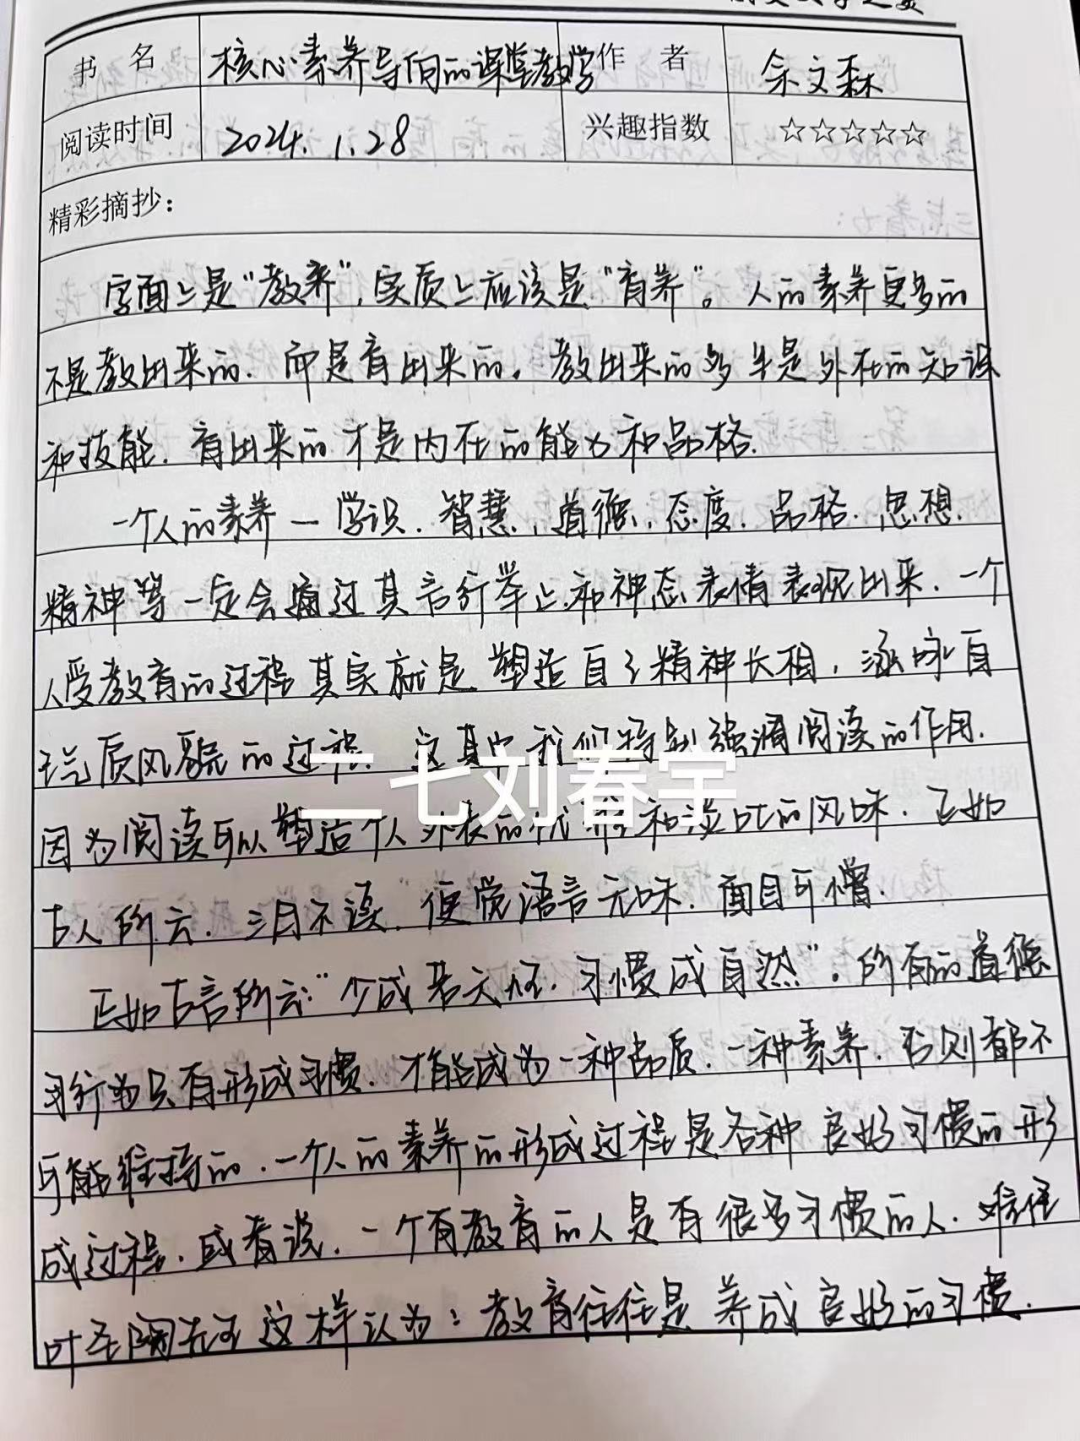 书名 核心素养导向的课堂教学 作者 余文森
阅读时间 2024.1.28 兴趣指数 ☆☆☆☆☆
精彩摘抄：
字面上是“教养”，实质上应该是“育养”。人的素养更多的
不是教出来的.而是育出来的。教出来的多半是外在的知识
和技能.育出来的才是内在的能力和品格.
一个人的素养—学识.智慧.道德.态度.品格.思想.
精神等一定会通过其言行举止和神态表情表现出来.一个
人受教育的过程其实就是塑造自己精神长相，涵咏自
己气质风貌的过程.这其中我们特别强调阅读的作用.
二七刘春宇
因为阅读可以塑造个人外表的优雅和谈吐的风味.正如
古人所云.三日不读.便觉语言无味.面目可憎.
正如古言所云:“少成若天性.习惯成自然”.所有的道德
习行为只有形成习惯.才能成为一种品质.一种素养.否则都不
可能维持的.一个人的素养的形成过程是各种良好习惯的形
成过程.或者说.一个有教育的人是有很多习惯的人.难怪
叶圣陶先生这样认为:教育往往是养成良好的习惯.